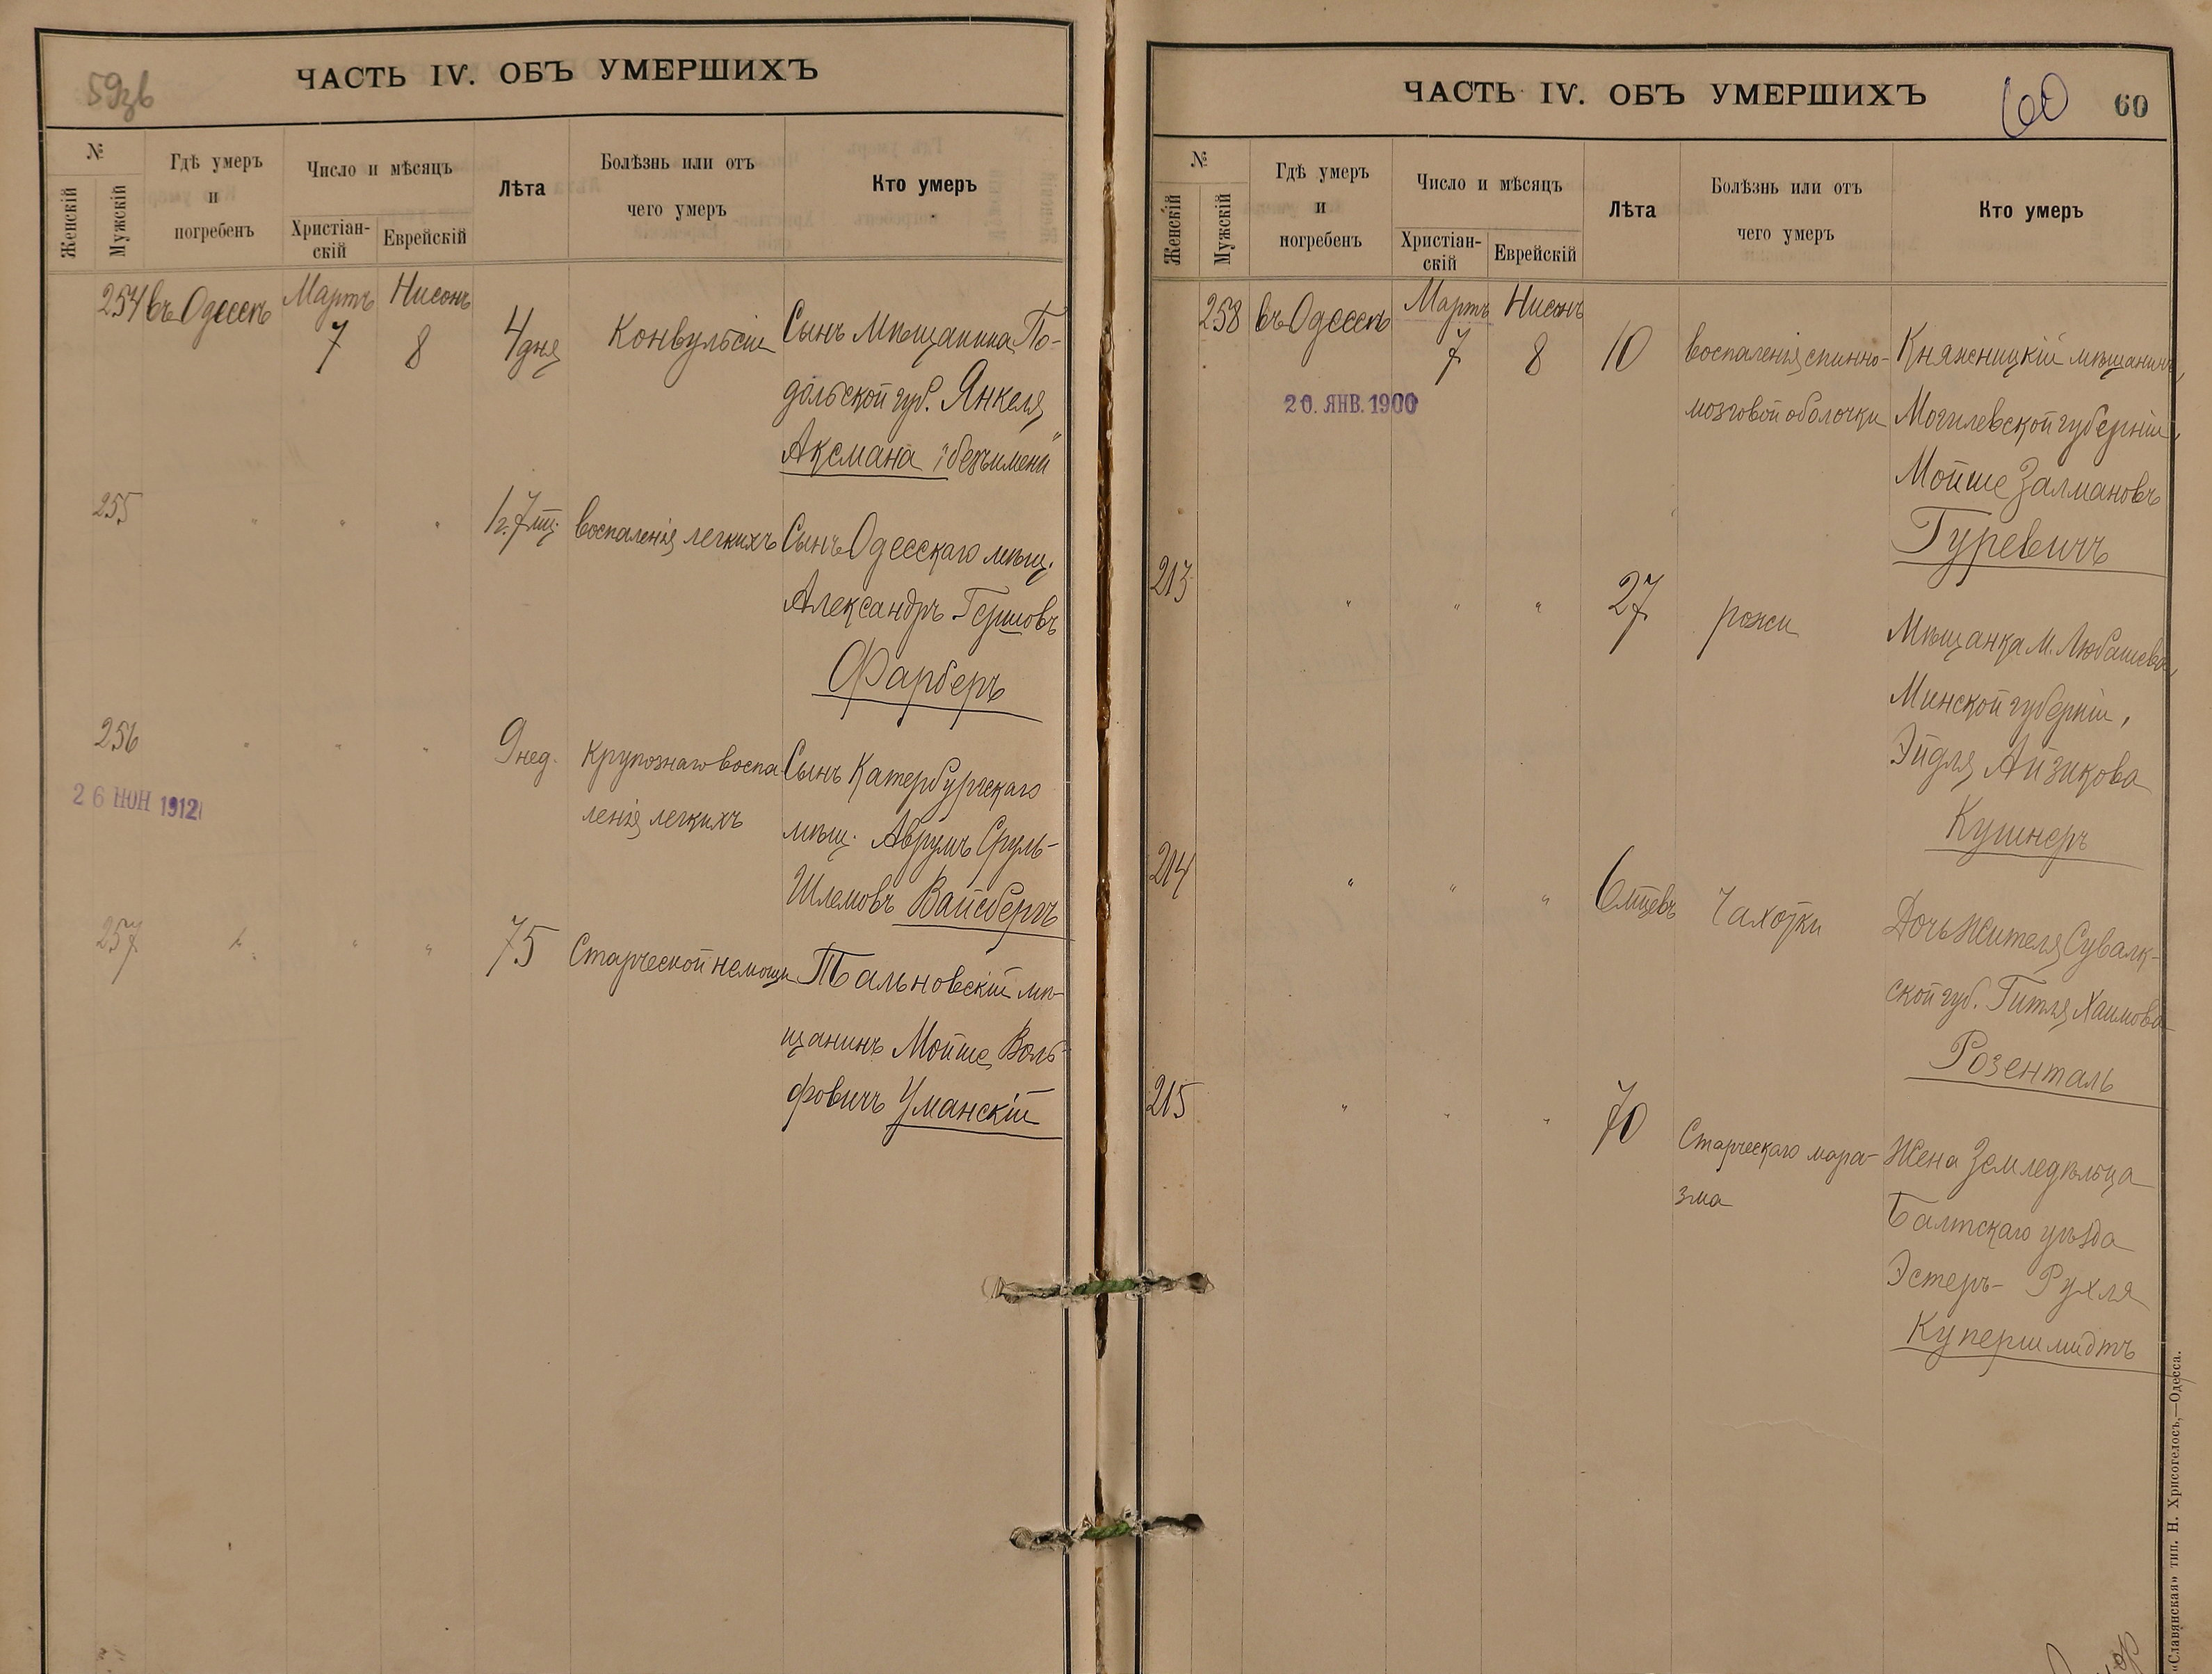 59зв
ЧАСТЬ IV. ОБЪ УМЕРШИХЪ
№
Женскій
Мужскій
Гдѣ умеръ
и
погребенъ
Число и мѣсяцъ
Христіан-
скій
Еврейскій
Лѣта
Болѣзнь или отъ
чего умеръ
Кто умеръ
254 въ Одессѣ Мартъ 7 Нисонъ 8 4 дня Конвульсіи Сынъ мѣщанина По-
дольской губ. Янкеля
Аксмана "безъ имени"
255 " " " 1 г. 7 мц. воспаленія легкихъ Сынъ Одесскаго мѣщ.
Александръ Гершовъ
Фарберъ
256 " " " 9 нед. крупознаго воспа- Сынъ Катербургскаго
26 ИЮН 1912
ленія легкихъ мѣщ. Аврумъ Сруль-
Шлемовъ Вайсбергъ
257 " " " 75 Старческой немощи Тальновскій мѣ-
щанинъ Мойше Воль-
фовичъ Уманскій
ЧАСТЬ IV. ОБЪ УМЕРШИХЪ
60 60
№
Женскій
Мужскій
Гдѣ умеръ
и
погребенъ
Число и мѣсяцъ
Христіан-
скій
Еврейскій
Лѣта
Болѣзнь или отъ
чего умеръ
Кто умеръ
258 въ Одессѣ Мартъ 7 Нисонъ 8 10 воспаленія спинно- Княжницкій мѣщанинъ,
20. ЯНВ. 1900
мозговой оболочки Могилевской губерніи,
Мойше Залмановъ
Гуревичъ
213 " " " 27 рожи Мѣщанка м. Любашева,
Минской губерніи,
Эйдля Айзикова
Кушнеръ
214 " " " 6 мцевъ Чахотки Дочь жителя Сувалк-
ской губ. Гитля Хаимова
Розенталь
215 " " " 70 Старческаго мара- Жена Земледѣльца
зма Балтскаго уѣзда
Эстеръ- Рухля
Купершмидтъ
«Славянская» тип. Н. Хрисогелосъ,—Одесса.